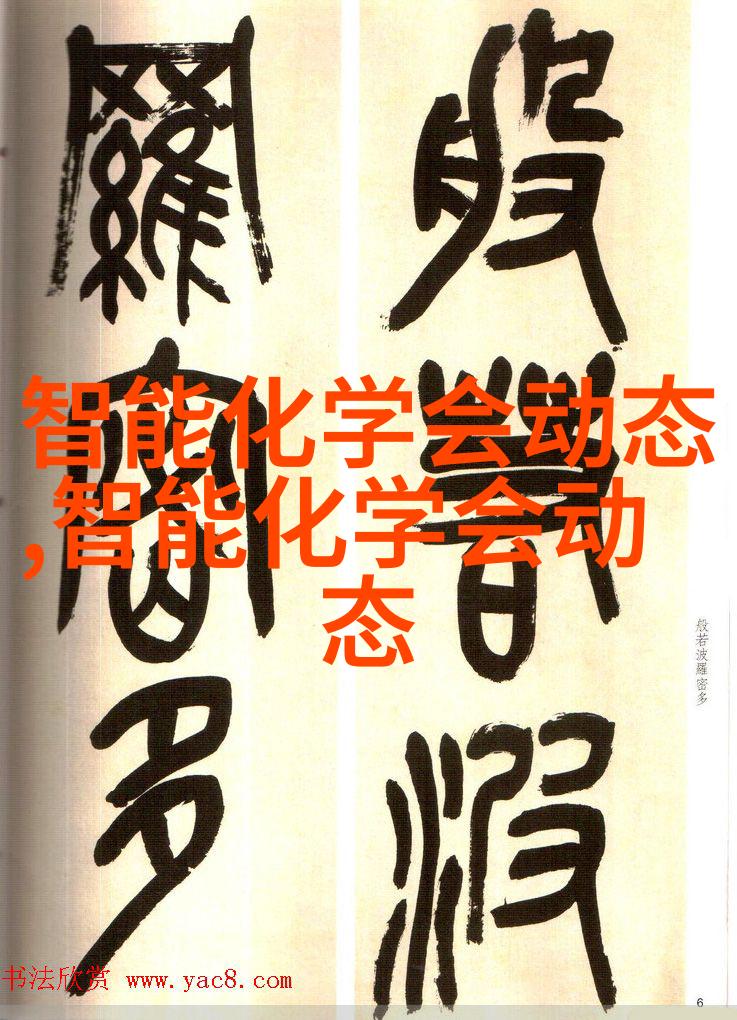 般若波
羅密多
智能化学会动态
,智能化学会动
态
般若波羅密多
书法欣赏 www.yac8.com
6